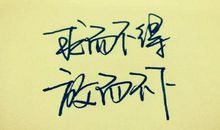 求而不得
放而不下